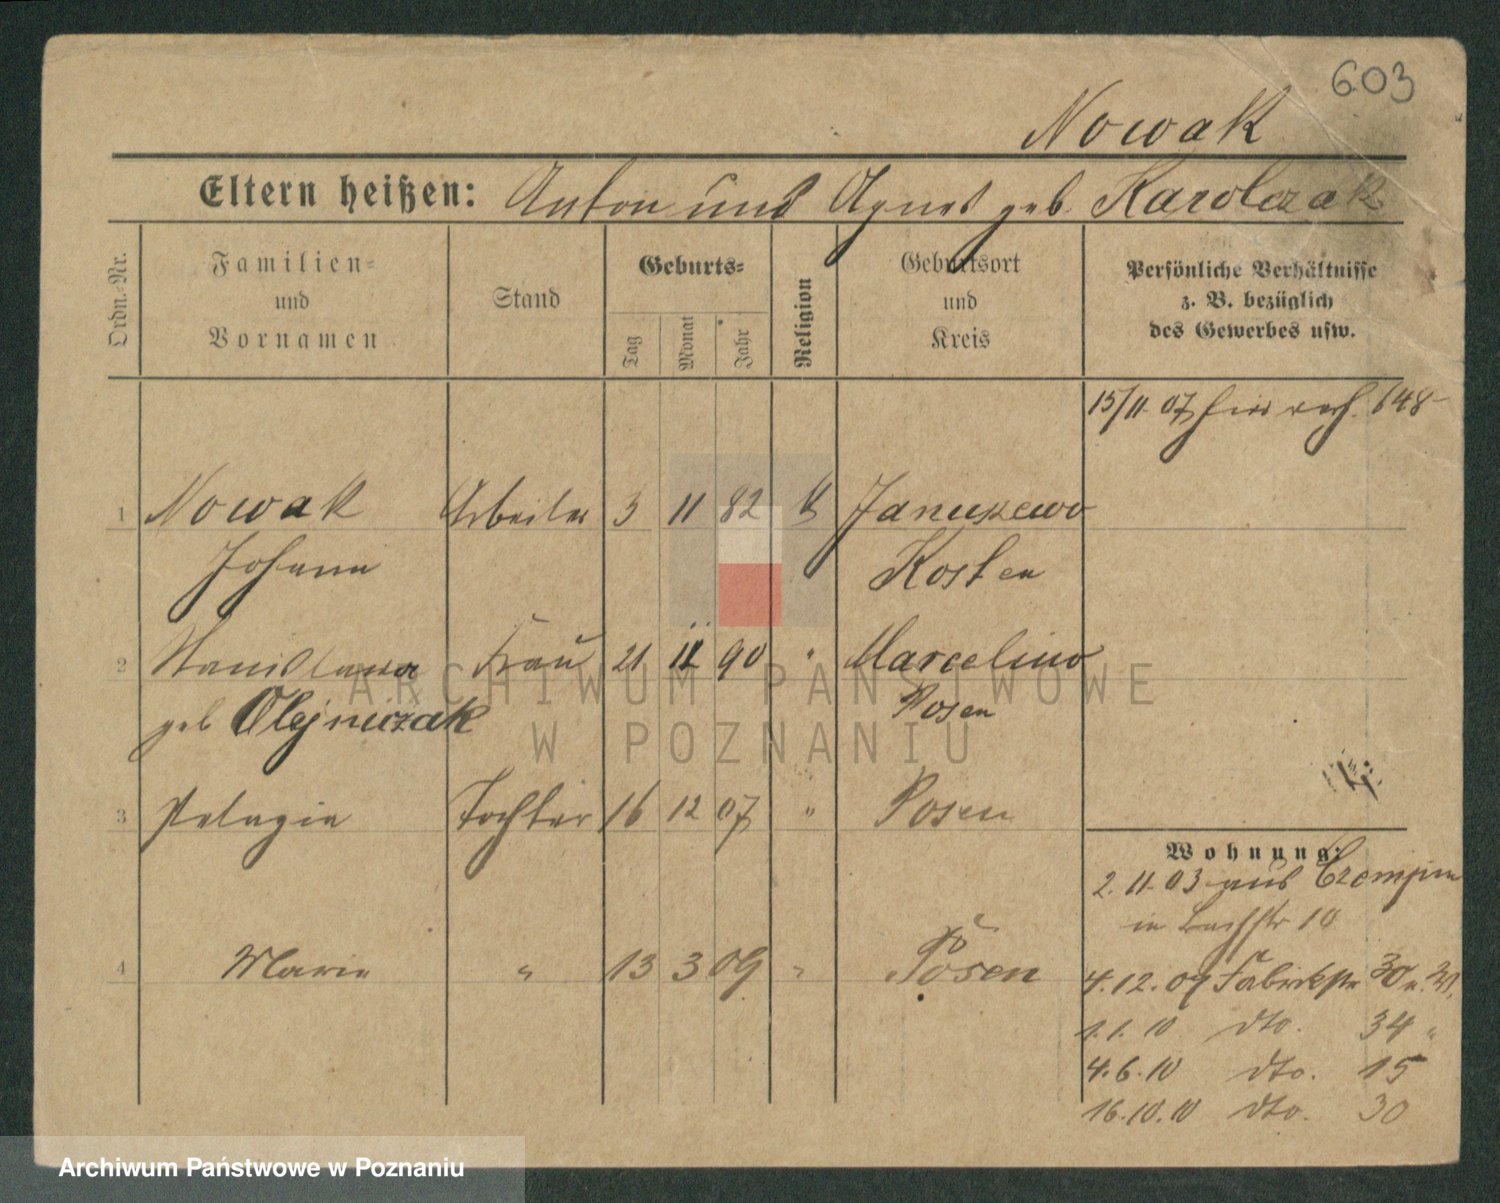 603
Nowak
Eltern heißen: Anton und Agnes geb. Karolczak
Ordn.-Nr.
Familien-
und
Vornamen
Stand
Geburts-
Tag
Monat
Jahr
Religion
Geburtsort
und
Kreis
Persönliche Verhältnisse
z. B. bezüglich
des Gewerbes usw.
15/11 07 648
1 Nowak Arbeiter 3 11 82 Januszewo
Johann Kosten
2 Stanislawa Frau 21 11 90 " Marcelino
geb Olejniczak Posen
3 Pelagia Tochter 16 12 07 " Posen
4 Marie " 13 3 09 " Posen
Wohnung:
2. 11. 03 aus Czempin
in Bachstr 10
4. 12. 09 Fabrikstr 30
1. 1. 10 dto. 34 "
4. 6. 10 dto. 15
16. 10. 10 dto. 30
ARCHIWUM PAŃSTWOWE
W POZNANIU
Archiwum Państwowe w Poznaniu